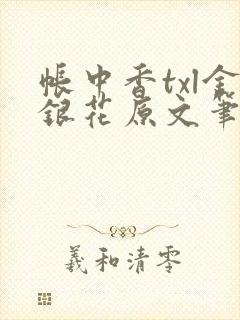 帳中香txl金
銀花原文筆
羲和清零